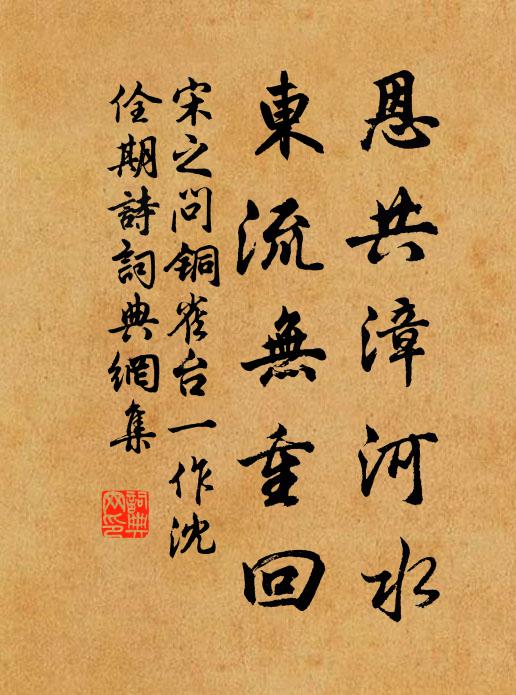 恩共漳河水
東流無重回
宋之问铜雀台一作沈
佺期詩詞典網集
詞典
网印